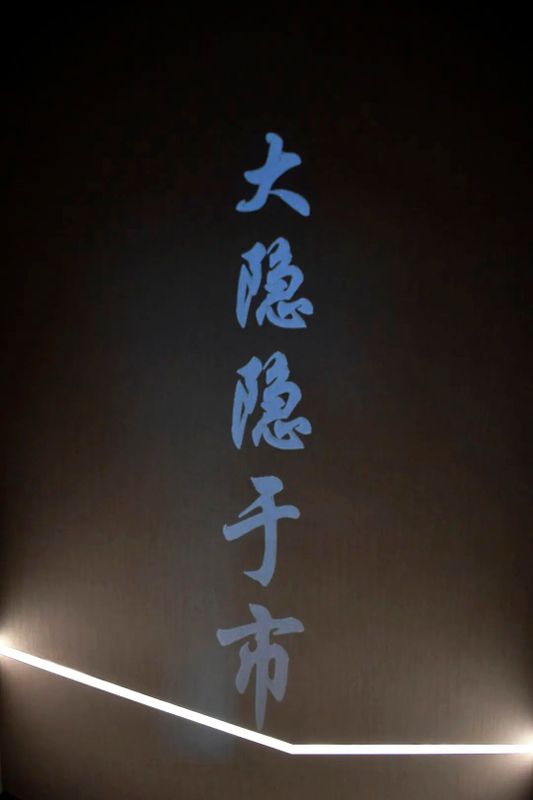 大隐隐于市